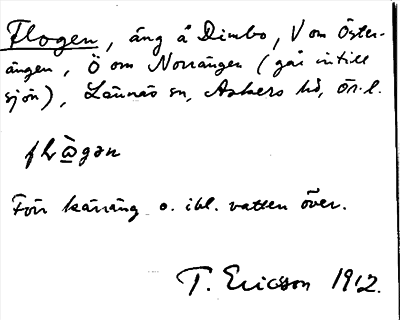 Flogen, äng å Dimbo, V om Öster-
ängen, Ö om Norrängen (går intill
sjön), Lännäs sn, Askers hd, Ör. l.
Förr kärräng o. ibl. vatten över.
T. Ericson 1912.